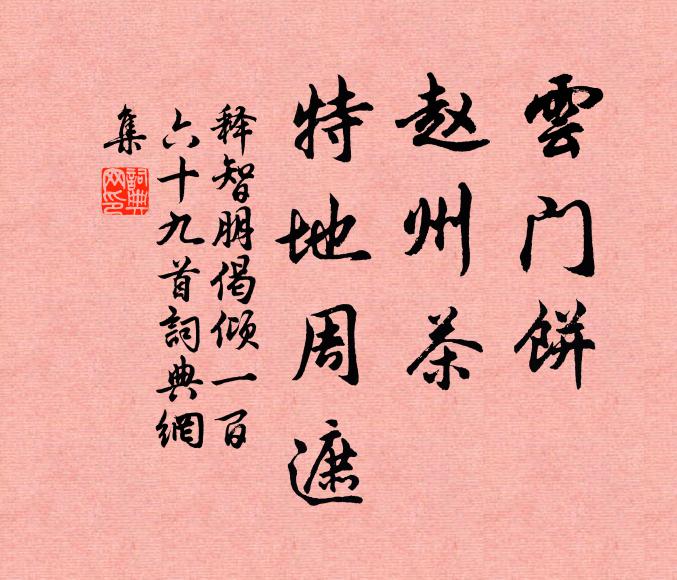 雲门餅
赵州茶
特地周遮
释智朋偈倾一百
六十九首詞典網
集
詞典网印